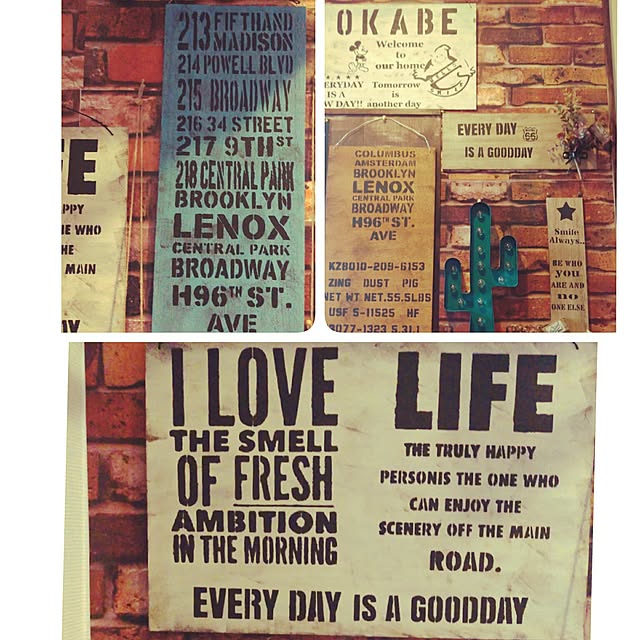 213 FIFTHAND
MADISON
214 POWELL BLVD
215 BROADWAY
216 34 STREET
217 9TH ST
218 CENTRAL PARK
BROOKLYN
LENOX
CENTRAL PARK
BROADWAY
H96TH ST.
AVE
FE
PPY
IE WHO
HE
MAIN
OKABE
Welcome
to
our home
Tomorrow
is
another day
ERYDAY
IS A
W DAY!!
EVERY DAY
66
IS A GOODDAY
COLUMBUS
AMSTERDAM
BROOKLYN
LENOX
CENTRAL PARK
BROADWAY
H96TH ST.
AVE
KZ8010-209-6153
ZING DUST PIG
NET WT NET.55.5LBS
USF S-11525 HF
Smile
Always...
BE WHO
you
ARE AND
no
ONE ELSE
I LOVE
THE SMELL
OF FRESH
AMBITION
IN THE MORNING
LIFE
THE TRULY HAPPY
PERSONIS THE ONE WHO
CAN ENJOY THE
SCENERY OFF THE MAIN
ROAD.
EVERY DAY IS A GOODDAY